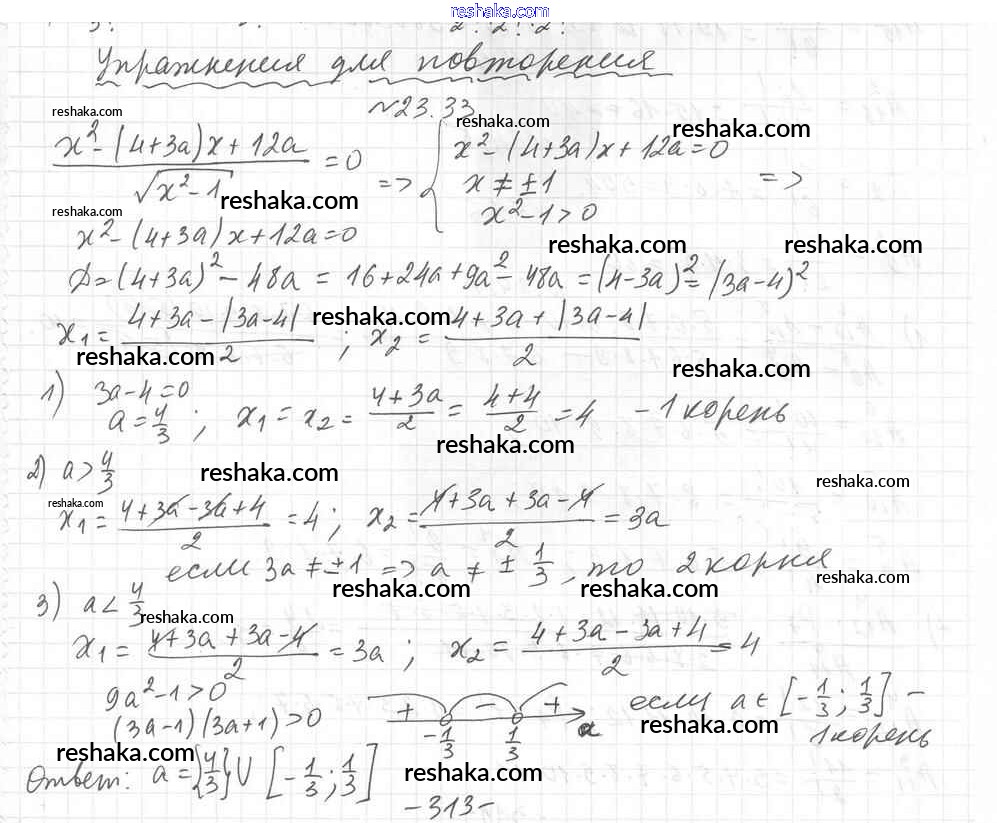 reshaka.com
Упражнения для повторения
№23.33
reshaka.com
reshaka.com
reshaka.com
(x² - (4+3a)x + 12a) / √(x² - 1) = 0 => { x² - (4+3a)x + 12a = 0
x ≠ ±1 =>
x² - 1 > 0
reshaka.com
reshaka.com
x² - (4+3a)x + 12a = 0
reshaka.com
reshaka.com
D = (4+3a)² - 48a = 16 + 24a + 9a² - 48a = (4-3a)² = (3a-4)²
x₁ = (4+3a - |3a-4|) / 2 ; x₂ = (4+3a + |3a-4|) / 2
reshaka.com
reshaka.com
reshaka.com
1) 3a-4=0
a = 4/3 ; x₁ = x₂ = (4+3a)/2 = (4+4)/2 = 4 - 1 корень
reshaka.com
2) a > 4/3
reshaka.com
reshaka.com
reshaka.com
x₁ = (4+3a-3a+4)/2 = 4 ; x₂ = (4+3a+3a-4)/2 = 3a
если 3a ≠ ±1 => a ≠ ± 1/3, то 2 корня
reshaka.com
reshaka.com
reshaka.com
3) a < 4/3
reshaka.com
x₁ = (4+3a+3a-4)/2 = 3a ; x₂ = (4+3a-3a+4)/2 = 4
9a² - 1 > 0
(3a-1)(3a+1) > 0
+ - + a
-1/3 1/3
если a ∈ [-1/3; 1/3] -
1 корень
reshaka.com
reshaka.com
Ответ: a = {4/3} ∪ [-1/3; 1/3]
reshaka.com
-313-